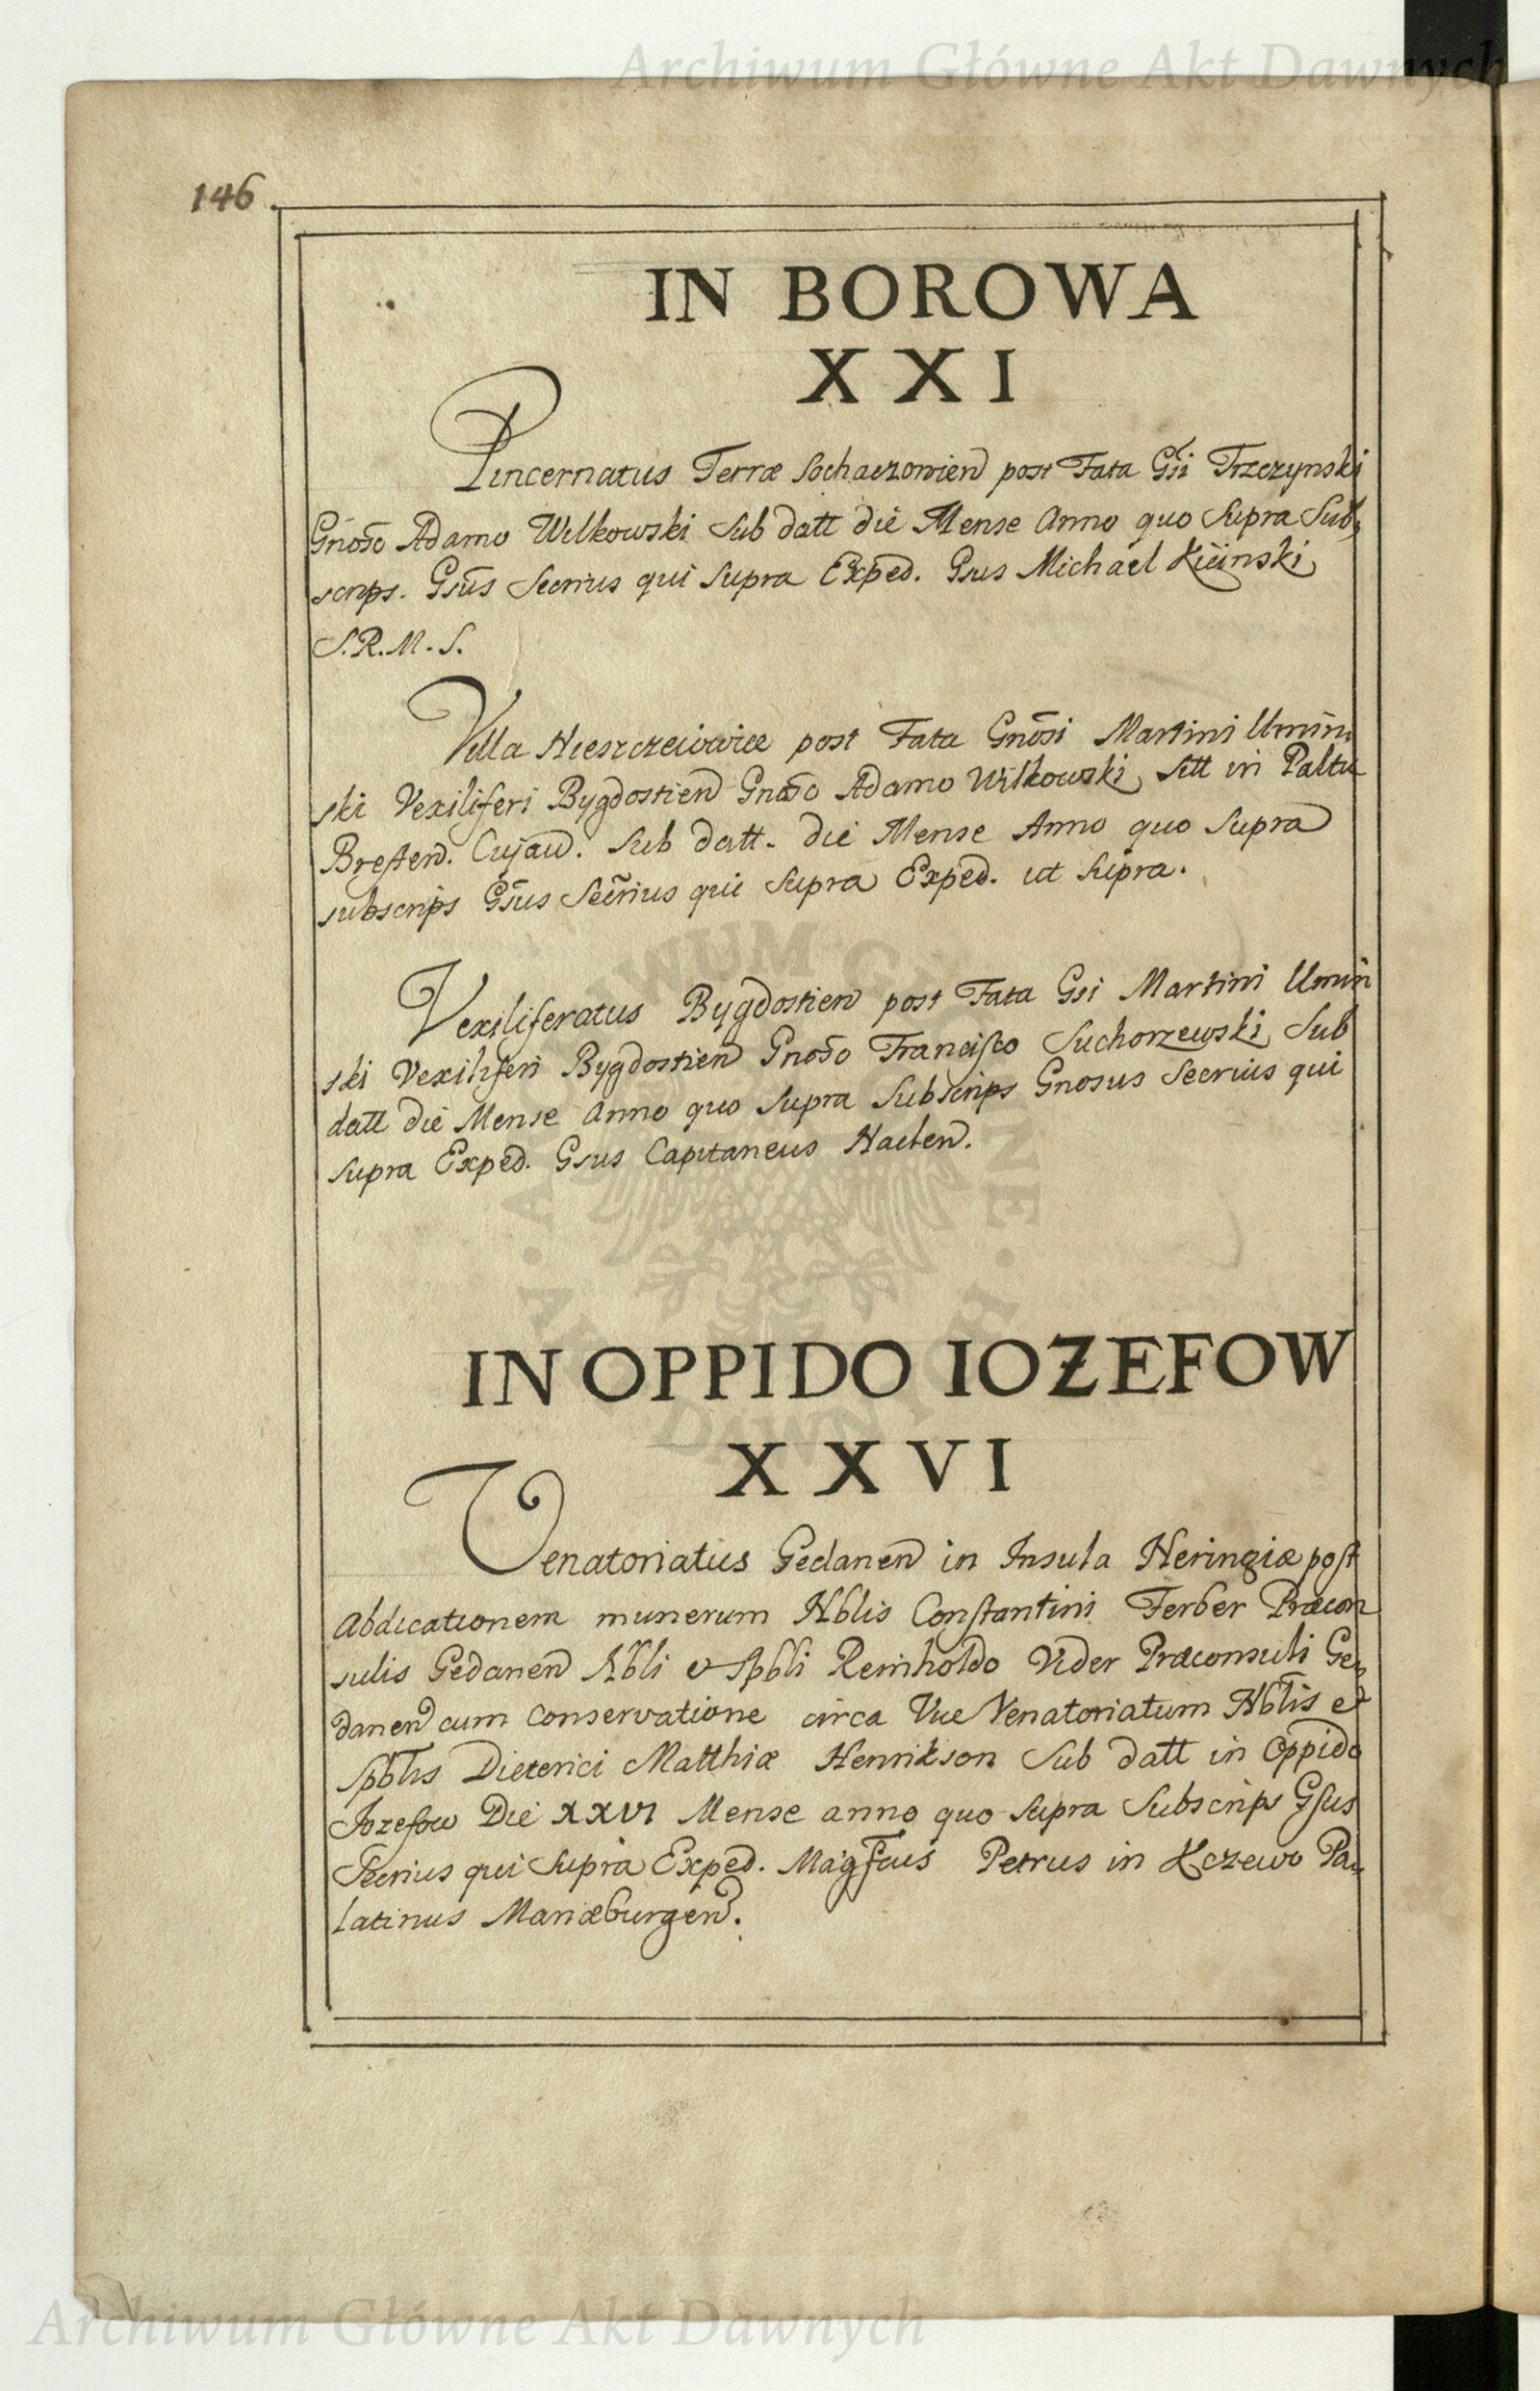 Archiwum Główne Akt Dawnych
146
IN BOROWA
XXI
Pincernatus Terræ Sochaczovien post Fata Gsi Trzczynski
Gnoso Adamo Wilkowski Sub datt die Mense Anno quo Supra Sub,
scrips. Gsus Secrius qui Supra Exped. Gsus Michael Kicinski
S.R.M.S.
Villa post Fata Gnosi Martini Umin,
ski Vexiliferi Bygdostien Gnoso Adamo Wilkowski Sitt in Paltu
Bresten. Cujav. Sub datt. die Mense Anno quo Supra
subscrips Gsus Secrius qui Supra Exped. ut Supra.
Vexiliferatus Bygdostien post Fata Gsi Martini Umin
ski Vexiliferi Bygdostien Gnoso Francisco Suchorzewski Sub
datt die Mense Anno quo Supra Subscrips Gnosus Secrius qui
supra Exped. Gsus Capitaneus Naclen.
IN OPPIDO IOZEFOW
XXVI
Venatoriatus Gedanen in Insula Neringiæ post
Abdicationem munerum Nblis Constantini Ferber Præcon
sulis Gedanen Nbli & Spbli Reinholdo Vider Præconsuli Ge,
danen cum conservatione circa Venatoriatum Nblis et
Spblis Dieterici Matthiæ Henrikson Sub datt in Oppido
Jozefow Die XXVI Mense anno quo Supra Subscrips Gsus
Secrius qui Supra Exped. Magfcus Petrus in Kczewo Pa,
latinus Mariæburgen.
Archiwum Główne Akt Dawnych